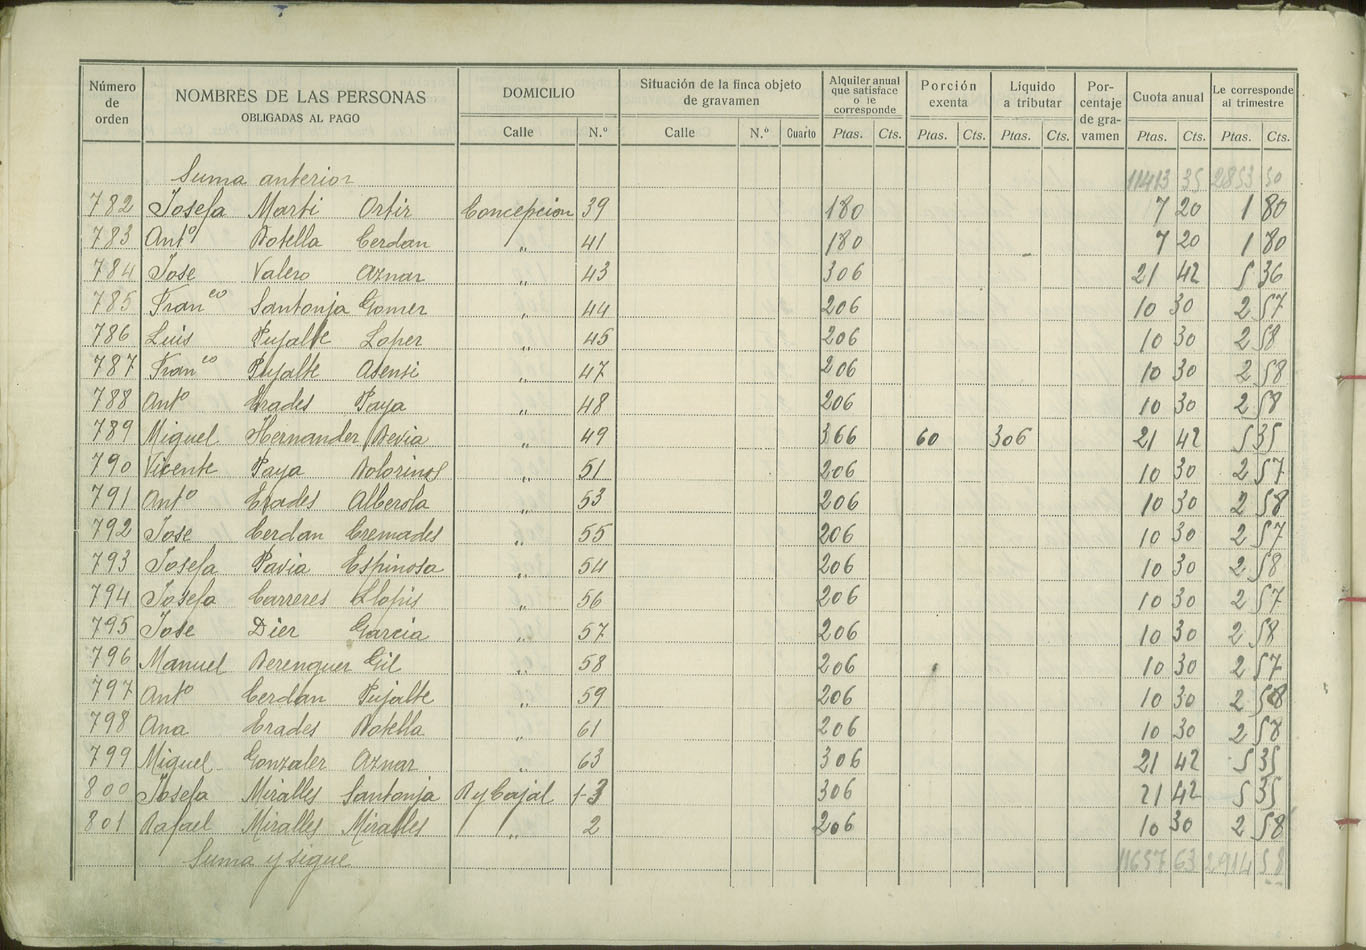 Número de orden NOMBRES DE LAS PERSONAS OBLIGADAS AL PAGO DOMICILIO Situación de la finca objeto de gravamen Alquiler anual que satisface o le corresponde Porción exenta Líquido a tributar Por-centaje de gra-vamen Cuota anual Le corresponde al trimestre
Calle N.º Calle N.º Cuarto Ptas. Cts. Ptas. Cts. Ptas. Cts. Ptas. Cts. Ptas. Cts.
Suma anterior 11413 35 2853 30
782 Josefa Marti Ortiz Concepcion 39 180 7 20 1 80
783 Antº Botella Cerdan " 41 180 7 20 1 80
784 Jose Valero Aznar " 43 306 21 42 5 36
785 Franco Santonja Gomez " 44 206 10 30 2 57
786 Luis Pujalte Lopez " 45 206 10 30 2 58
787 Franco Pujalte Asensi " 47 206 10 30 2 58
788 Antº Erades Paya " 48 206 10 30 2 58
789 Miguel Hernandez Bevia " 49 366 60 306 21 42 5 35
790 Vicente Paya Dolorinos " 51 206 10 30 2 57
791 Antº Erades Alberola " 53 206 10 30 2 58
792 Jose Cerdan Cremades " 55 206 10 30 2 57
793 Josefa Pavia Espinosa " 54 206 10 30 2 58
794 Josefa Carreres Llopis " 56 206 10 30 2 57
795 Jose Diez Garcia " 57 206 10 30 2 58
796 Manuel Berenguer Gil " 58 206 10 30 2 57
797 Antº Cerdan Pujalte " 59 206 10 30 2 58
798 Ana Erades Botella " 61 206 10 30 2 58
799 Miguel Gonzalez Aznar " 63 306 21 42 5 35
800 Josefa Miralles Santonja R y Cajal 1-3 306 21 42 5 35
801 Rafael Miralles Miralles " 2 206 10 30 2 58
Suma y sigue 11657 63 2914 58